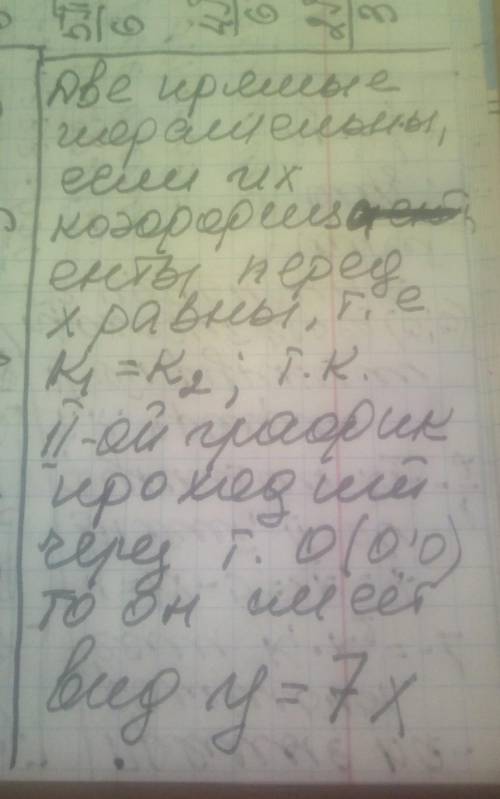 5π/6 4π/6 2π/3
Две прямые
паралельны,
если их
коэффици
енты перед
х равны, т.е
к₁ = к₂; т.к.
II-ой график
проходит
через т. О(0;0)
то он имеет
вид y = 7x